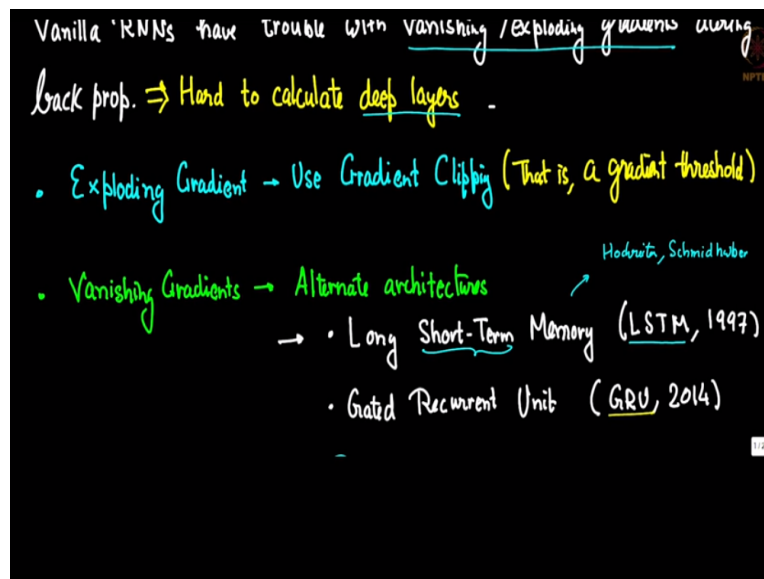 Vanilla RNNs have trouble with vanishing/exploding gradients during
back prop. ⇒ Hard to calculate deep layers -
NPTEL
• Exploding Gradient → Use Gradient Clipping (That is, a gradient threshold)
Hochreiter, Schmidhuber
• Vanishing Gradients → Alternate architectures
→ • Long Short-Term Memory (LSTM, 1997)
• Gated Recurrent Unit (GRU, 2014)